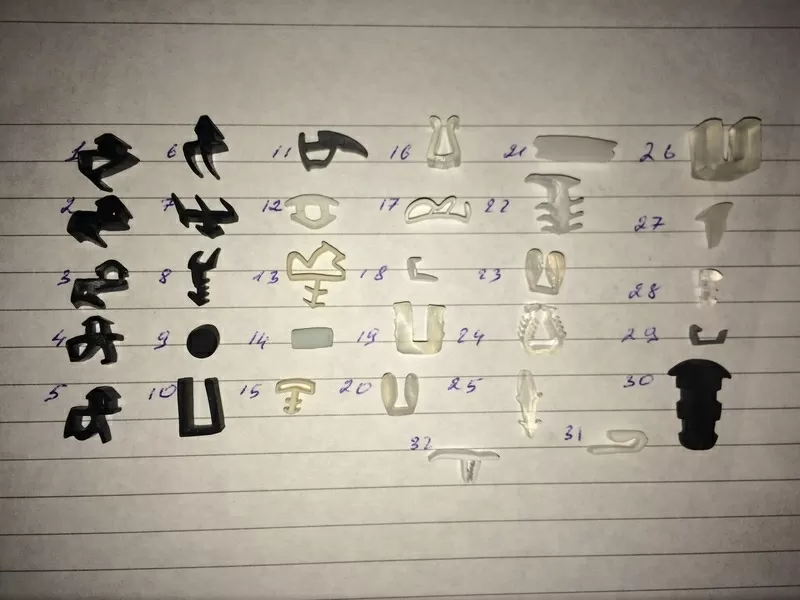 1 6 11 16 21 26
2 7 12 17 22 27
3 8 13 18 23 28
4 9 14 19 24 29
5 10 15 20 25 30
32 31